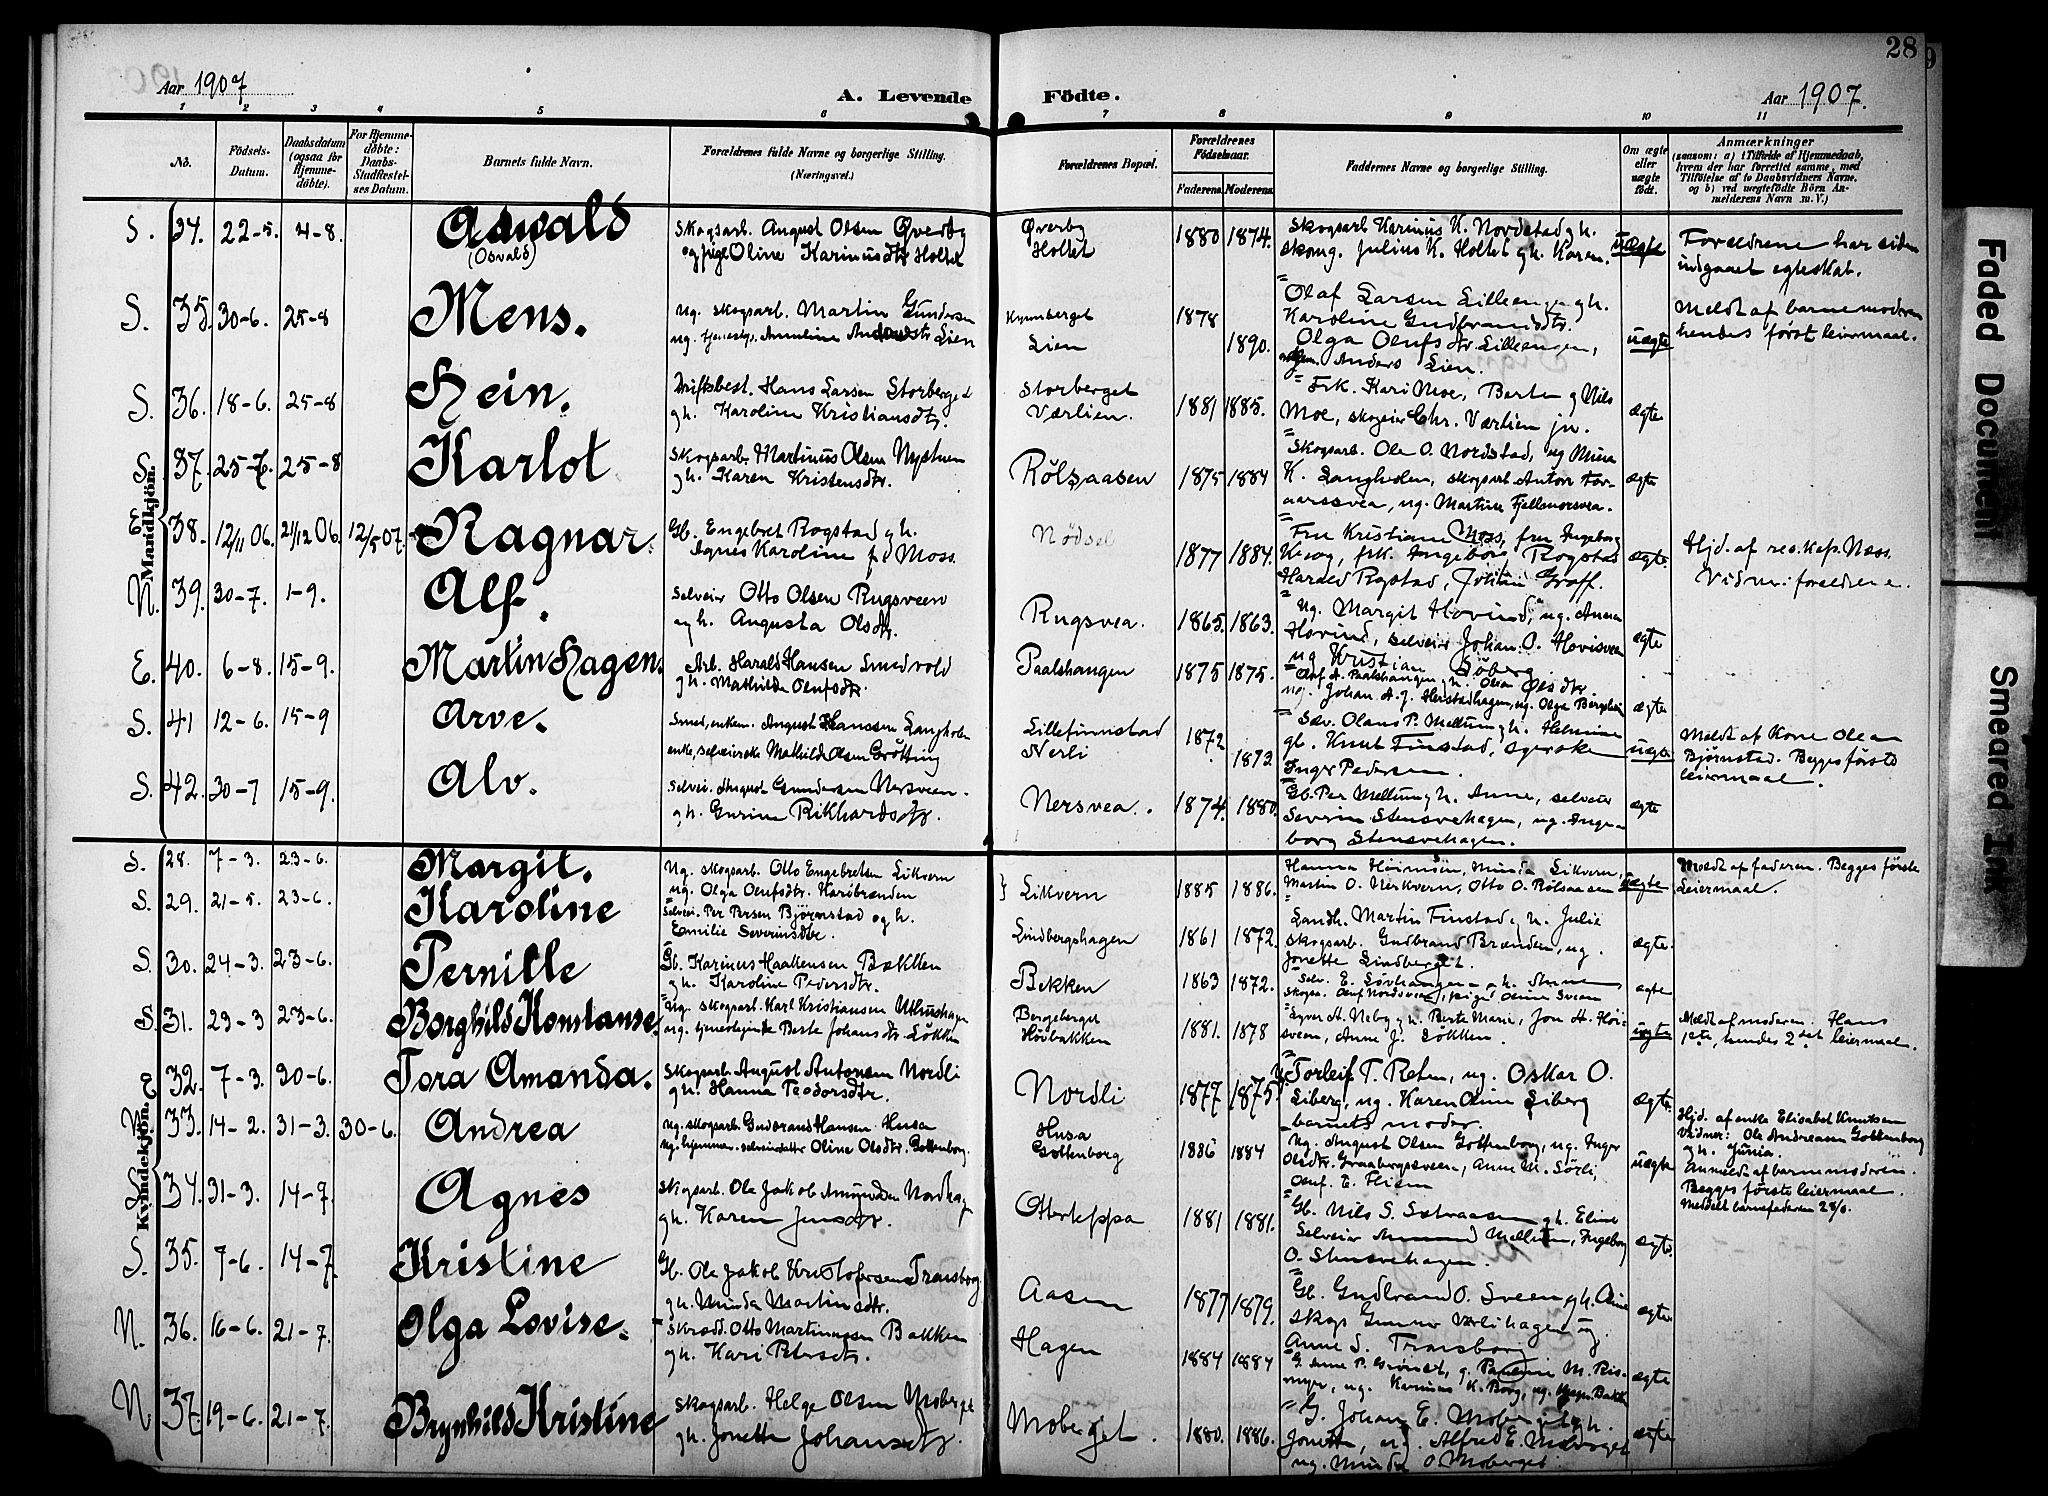 28
9
Aar 1907
A. Levende
Födte.
Aar 1907.
1 2 3 4 5 6 7 8 9 10 11
No.
Födsels-
Datum.
Daabsdatum
(ogsaa for
Hjemme-
döbte).
For Hjemme-
döbte:
Daabs-
Stadfæstel-
ses Datum.
Barnets fulde Navn.
Forældrenes fulde Navne og borgerlige Stilling.
(Næringsvei.)
Forældrenes Bopæl.
Forældrenes
Födselsaar.
Faderens. Moderens.
Faddernes Navne og borgerlige Stilling.
Om ægte
eller
uægte
födt.
Anmærkninger
(saasom: a) i Tilfælde af Hjemmedaab,
hvem der har forrettet samme, med
Tilföielse af to Daabsvidners Navne,
og b) ved uægtefödte Börn An-
melderens Navn m. V.)
Mandkjön.
S. 34. 22-5. 4-8. Aswald
(Osvald)
Skogsarb. August Olsen Øverby
og pige Oline Karinusdtr Holtet
Øverby
Holtet
1880 1874.
Skogsarb Karinus K. Nordstad g h.
skomg. Julius K. Holtet g h. Karen.
uægte
Forældrene har siden
indgaaet egteskab.
S. 35. 30-6. 25-8 Mens.
Ug. skogsarb. Martin Gundersen
ug. tjenestep. Anneline Andersdtr Lien
Kynnberget
Lien
1878
1890.
Olaf Larsen Lilleengen g h.
Karoline Gudbrandsdtr.
Olga Olufsdtr Lilleengen,
Anders Lien.
uægte
Meldt af barnemoderen
hendes først leiermaal.
S. 36. 18-6. 25-8 Hein.
Driftsbest. Hans Larsen Storberget
g h. Karoline Kristiansdtr.
Storberget
Værlien.
1881 1885.
Frk. Kari Moe, Berte g Nils
Moe, skogeier Chr. Værlien jr.
ægte
S. 37. 25-7. 25-8 Karlot
Skogsarb. Martinus Olsen Nystuen
g h. Karen Kristensdtr.
Rølsaasen
1875 1884
Skogsarb. Ole O. Nordstad, ug Mina
K. Langholen, skogsarb Anton For-
aarssvea, ug. Martine Fjellmorsvea.
ægte
E. 38. 12/11 06. 21/12 06. 12/5 07. Ragnar.
Gb. Engebret Rogstad g h.
Agnes Karoline f. Moss.
Nødsel
1877 1884.
Fru Kristiane Moss, fru Ingeborg
Krog, frk. Ingeborg Rogstad
Harald Rogstad, Johan Graff.
ægte.
Hjd. af res. kap. Næss.
Vidner: forældrene.
N. 39. 30-7. 1-9. Alf.
Selveier Otto Olsen Rugsveen
g h. Augusta Olsdtr.
Rugsvea.
1865. 1863.
Ug. Margit Hovind, ug. Anna
Hovind, selveier Johan O. Hovisveen
ug Kristian Søberg
ægte
E. 40. 6-8. 15-9. Martin Hagen.
Arb. Harald Hansen Smedvold
g h. Mathilde Olufsdtr.
Paalshangen
1875 1875.
Oluf A. Paalshangen g h. Olea Olsdtr.
ug. Johan A. J. Herstadhagen, ug. Olga Bergslien
ægte
S. 41 12-6. 15-9 Arve.
Smed, enkem. August Hanssen Langholen
enke, selveierske Mathilde Olsen Grøtting
Lillefinnstad
Nerli
1872
1872
Selv. Olaus P. Mellum g h. Helmine
gb. Knut Finstad, egerske
Inger Pedersen.
uægte
Meldt af Kone Olea
Bjørnstad. Begges første
leiermaal.
S. 42. 30-7 15-9. Alv.
Selvei. August Gundersen Nersveen.
g h. Gurine Rikhardsdtr.
Nersvea.
1874. 1880.
Gb. Per Mellum g h. Anne, selveier
Severin Stensvehagen, ug. Inge-
borg Stensvehagen.
ægte
Kvindekjön.
S. 28. 7-3. 23-6. Margit.
Ug. skogsarb. Otto Engebretsen Likvern
ug. Olga Olufsdtr. Haribranden
Likvern
1885 1886.
Hanna Høimoen, Minda Likvern,
Martin O. Nerkvern, Otto O. Rølsaasen
uægte
Meldt af faderen. Begges første
Leiermaal.
S. 29. 21-5. 23-6. Karoline
Selvei. Per Persen Bjørnstad og h.
Emilie Severinsdtr.
Lindbergshagen
1861 1872.
Landh. Martin Finstad g h. Julie
Skogsarb. Gudbrand Brænden, ug.
Jonette Lindberget.
ægte.
S. 30. 24-3. 23-6. Pernille
Gb. Karinus Haakensen Bækken
g h. Karoline Pedersdtr.
Bekken
1863 1872.
Selv. E. Løvhaugen g h.
skogsa. Oluf Nordsveen, pige Oline Sveen
ægte
S. 31. 23-3 23-6. Borghild Konstanse.
Ug. skogsarb. Karl Kristiansen Uthushagen
ug. tjenestepige Berte Johansdtr. Løkken
Bergeberget
Høibakken
1881. 1878
Syver H. Neby g h. Berte Marie, Jon H. Høi-
sveen, Anne J. Løkken.
uægte
Meldt af moderen. Hans
1ste, hendes 2det leiermaal.
E 32. 7-3. 30-6. Tora Amanda.
Skogsarb. August Antonsen Nordli
g h. Hanna Teodorsdtr.
Nordli
1877 1875
Torleif T. Reten, ug. Oskar O.
Liberg, ug. Karen Oline Liberg
barnets moder.
ægte.
N. 33. 14-2. 31-3. 30-6. Andrea
Ug. skogsarb. Gudbrand Hansen Husa
Ug. hjemmev. selveierdatter Oline Olsdtr. Gottenborg.
Husa
Gottenborg
1886 1884
Ug. August Olsen Gottenborg, ug. Inger
Olsdtr. Graabergsveen, Anne M. Sørli,
Oluf E. Hiem
uægte
Hjd. af enke Elisabet Knutsen
Vidner: Ole Andreasen Gottenborg
g h. Junia.
Anmeldt af barnemoderen.
Begges første leiermaal.
Meddelt barnefaderen 28/6.
S. 34. 31-3. 14-7. Agnes
Skogsarb. Ole Jakob Amundsen Nordhagen
g h. Karen Jensdtr.
Otterteppa
1881 1881.
Gb. Nils S. Sætraasen g h. Eline
Selveier Amund Mellum, Ingeborg
O. Stensvehagen.
ægte.
S. 35. 7-6. 14-7. Kristine
Gb. Ole Jakob Kristofersen Transborg
g h. Minda Martinsdtr.
Aasen
1877 1879.
Gb. Gudbrand O. Sveen g h. Oline
Skogs Gunnar Værlihagen ug.
Anne S. Transborg
ægte.
N. 36. 16-6. 21-7. Olga Lovise.
Skræd. Otto Martinussen Bakken
g h. Kari Petersdtr.
Hagen
1884 1884
G. Anne P. Grønset, g. Pauline M. Ris-
myr, ug. Karinus K. Borg, ug. Bakk
ægte
N 37. 19-6. 21-7. Brynhild Kristine
Skogsarb. Helge Olsen Moberget
g h. Jonette Johansdtr.
Moberget.
1880. 1886.
G. Johan E. Moberget g h.
Jonette, ug. Alfred E. Moberget
ug. Minda O Moberget.
ægte
Faded Document
Smeared Ink